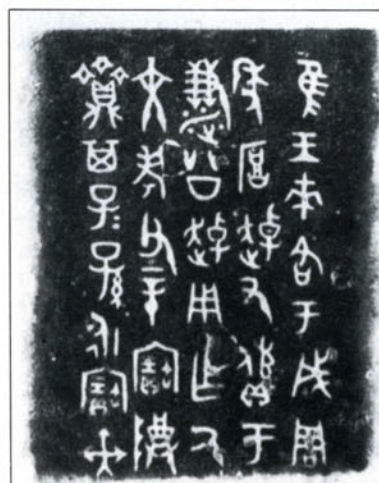 隹王來各于成周
年厚趠又于
溓公趠用乍厥
文考父辛寶尊
齍其子=孫=永寶束